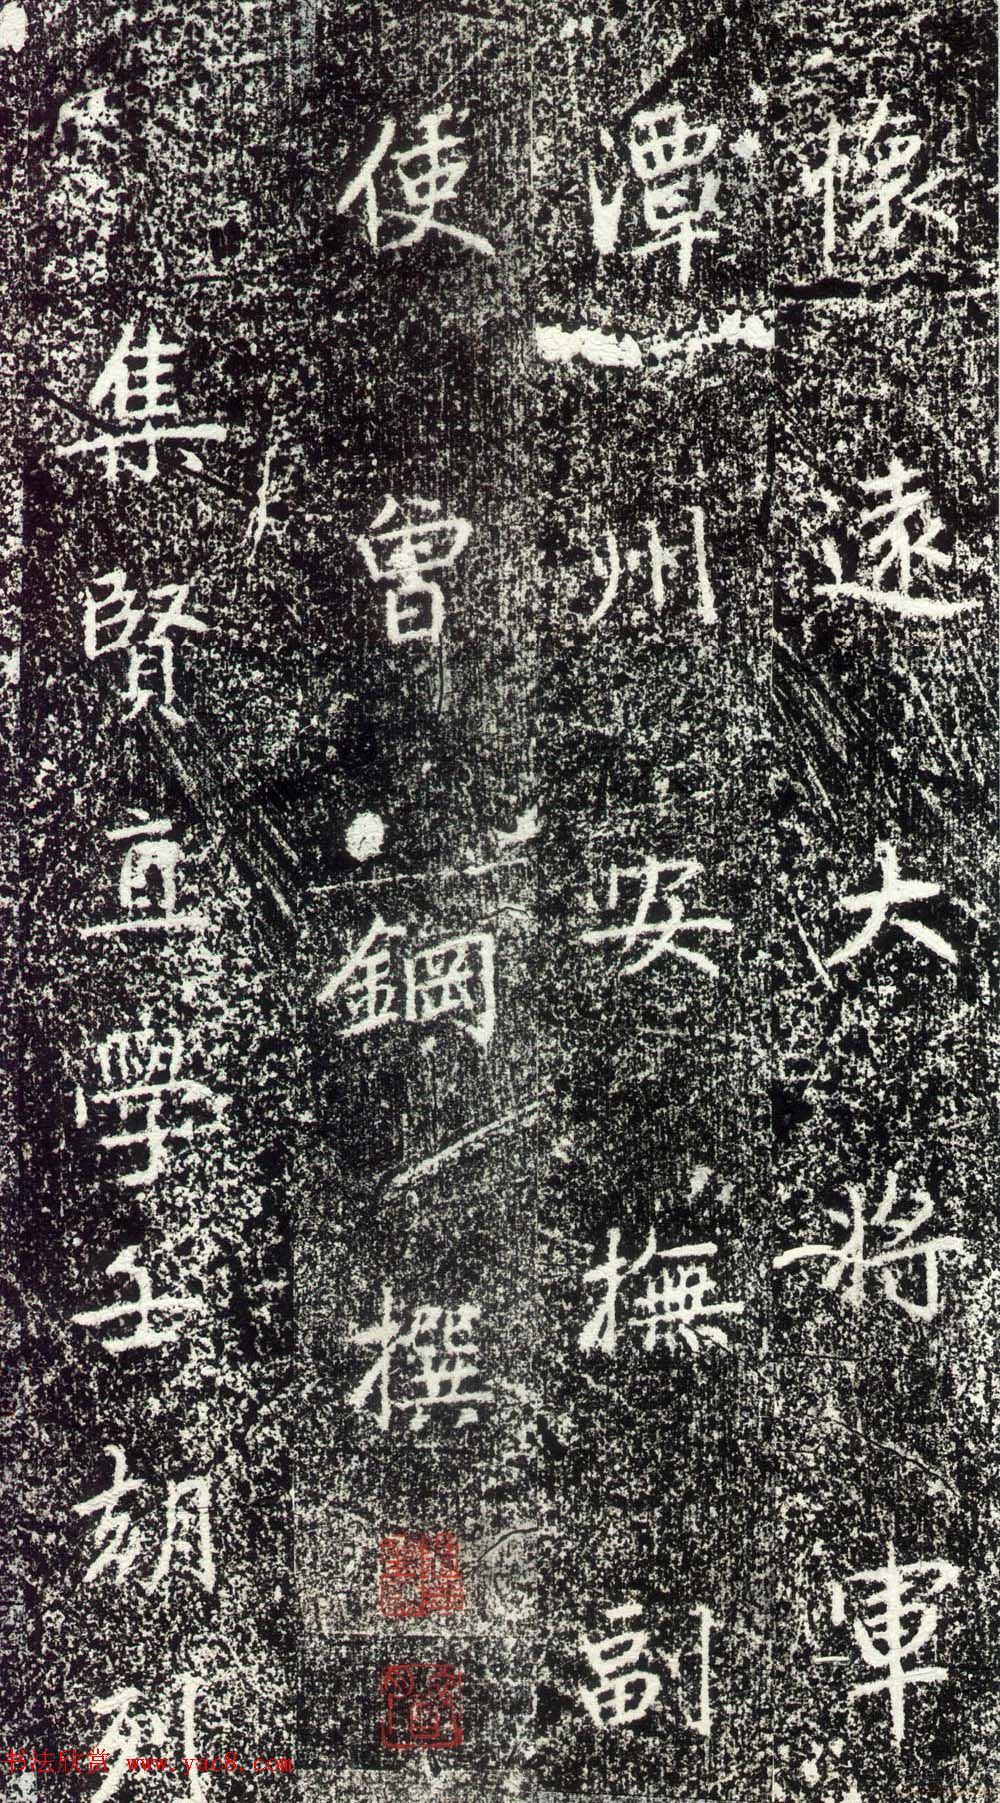 懷遠大將軍
潭州安撫副
使曾鋼撰
集賢直學士胡列
书法欣赏 www.yac8.com